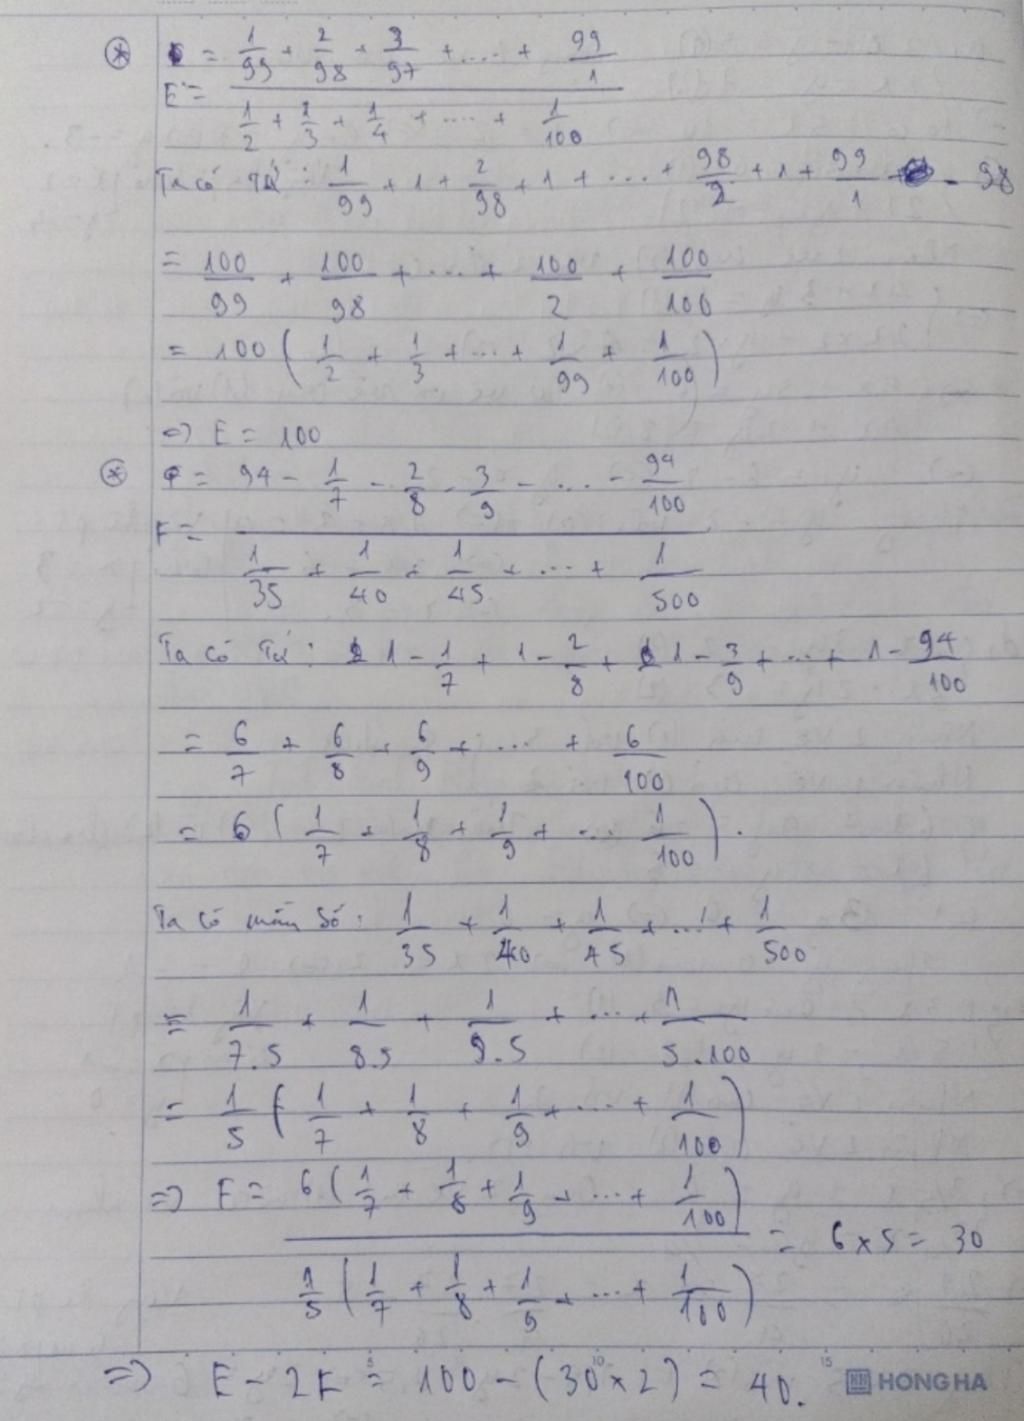 * = 1/99 + 2/98 + 3/97 + .... + 99/1
E = 1/2 + 1/3 + 1/4 + .... + 1/100
Ta có Tử : 1/99 + 1 + 2/98 + 1 + ... + 98/2 + 1 + 99/1 - 98
= 100/99 + 100/98 + ... + 100/2 + 100/100
= 100 ( 1/2 + 1/3 + ... + 1/99 + 1/100 )
=> E = 100
* = 94 - 1/7 - 2/8 - 3/9 - ... - 94/100
F = 1/35 + 1/40 + 1/45 + ... + 1/500
Ta có Tử : 1 - 1/7 + 1 - 2/8 + 1 - 3/9 + ... + 1 - 94/100
= 6/7 + 6/8 + 6/9 + ... + 6/100
= 6 ( 1/7 + 1/8 + 1/9 + ... 1/100 ) .
Ta có mẫu số : 1/35 + 1/40 + 1/45 + ... + 1/500
= 1/7.5 + 1/8.5 + 1/9.5 + ... + 1/5.100
= 1/5 ( 1/7 + 1/8 + 1/9 + ... + 1/100 )
=> F = 6 ( 1/7 + 1/8 + 1/9 + ... + 1/100 )
= 6 x 5 = 30
1/5 ( 1/7 + 1/8 + 1/9 + ... + 1/100 )
=> E - 2F = 100 - ( 30 x 2 ) = 40.
5 10 15
HONG HA